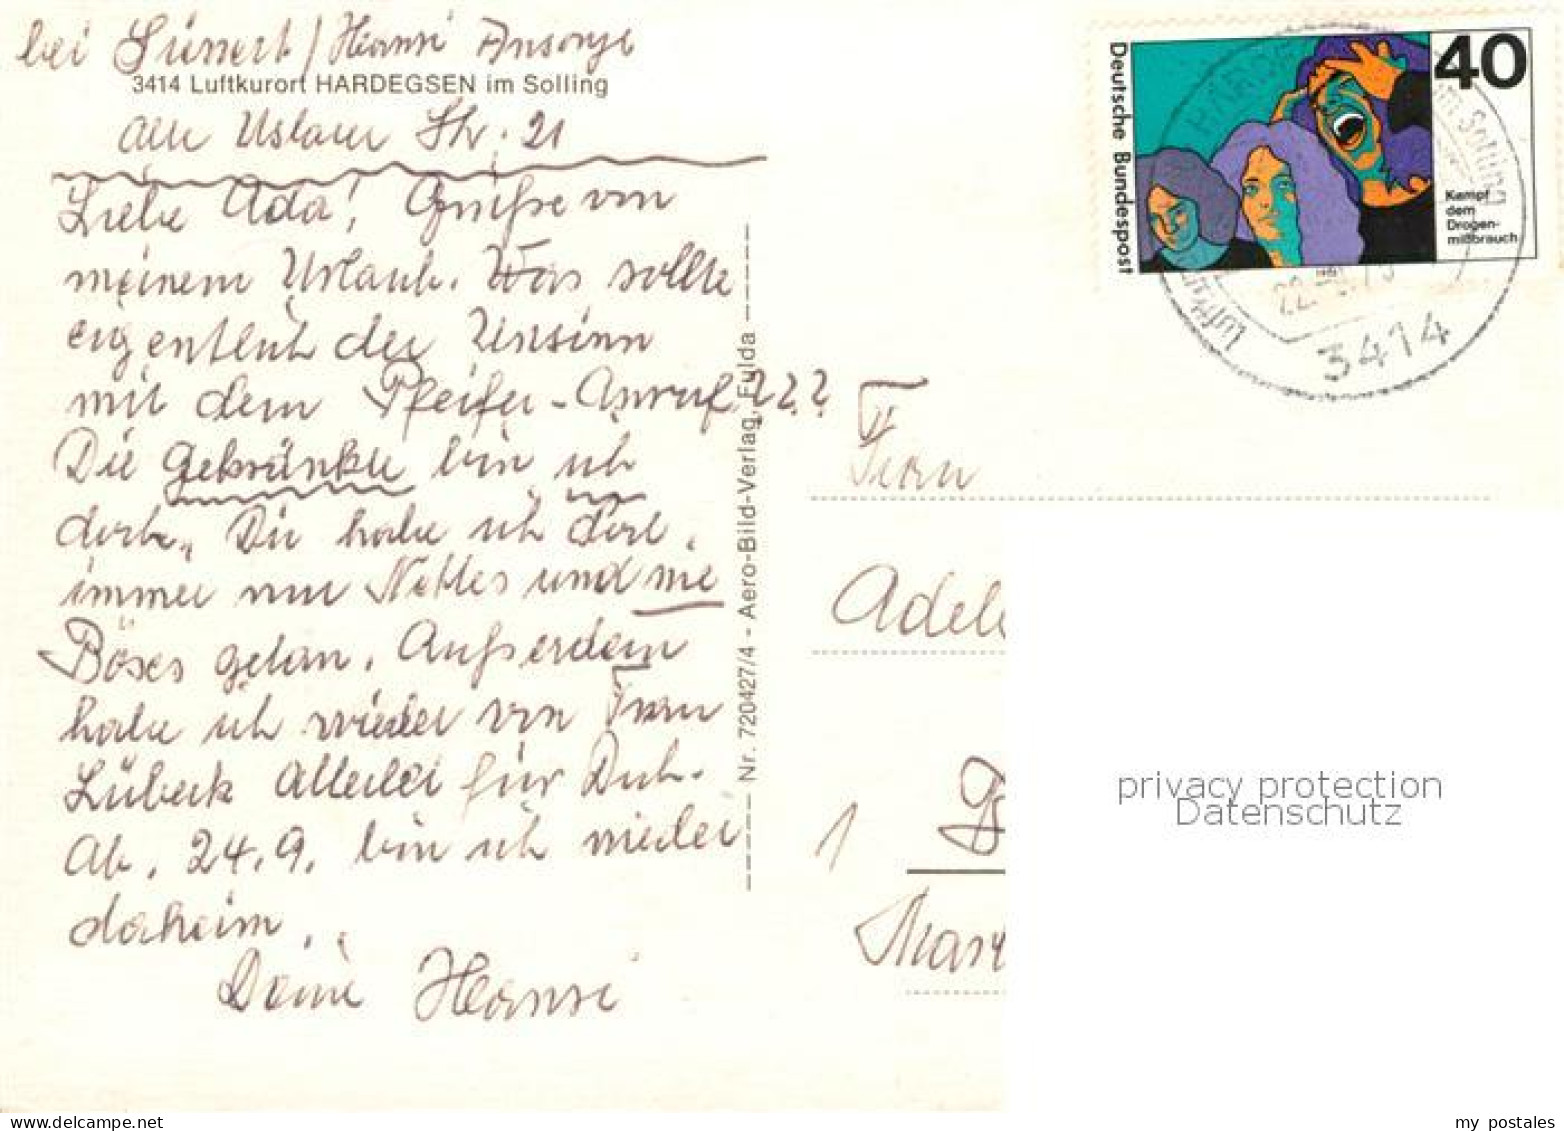 bei Sünnert / Hansi Ansorge
3414 Luftkurort HARDEGSEN im Solling
Alte Uslarer Str. 21
Liebe Ada! Grüße von
meinem Urlaub. Was sollte
eigentlich der Unsinn
mit dem Pfeifer-Anruf???
Die gekränkte bin ich
doch. Dir habe ich dort
immer nur Nettes und nie
Böses getan. Außerdem
habe ich wieder von Frau
Lübeck Allerlei für Dich.
Ab. 24.9. bin ich wieder
daheim.
Deine Hansi
Nr. 720427/4 - Aero-Bild-Verlag, Fulda
Deutsche Bundespost
40
Kampf
dem
Drogen-
mißbrauch
3414
Frau
Adele
1
privacy protection
Datenschutz
www.delcampe.net
my_postales